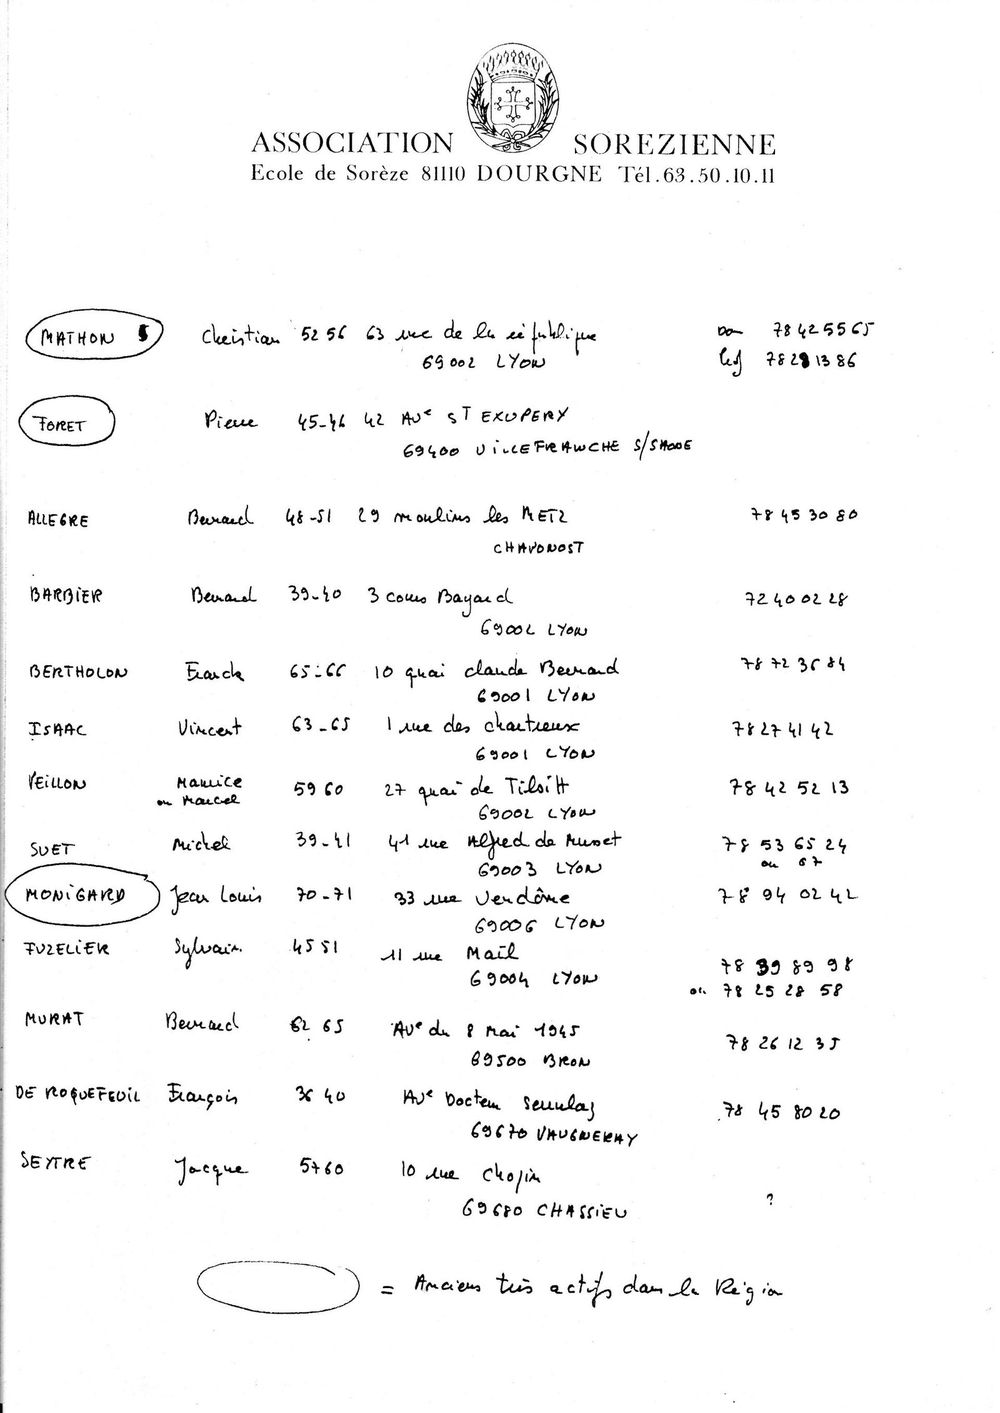 ASSOCIATION SOREZIENNE
Ecole de Sorèze 81110 DOURGNE Tél.63.50.10.11
MATHON Christian 52 56 63 rue de la république 78 42 55 65
69002 LYON 78 28 13 86
FORET Pierre 45-46 42 AVe ST EXUPERY
69400 VILLEFRANCHE S/SAONE
ALLEGRE Bernard 48-51 29 moulins les METZ 78 45 30 80
CHAPONOST
BARBIER Bernard 39-40 3 cours Bayard 72 40 02 28
69002 LYON
BERTHOLON Franck 65-66 10 quai claude Bernard 78 72 36 84
69001 LYON
ISAAC Vincent 63-65 1 rue des chartreux 78 27 41 42
69001 LYON
VEILLON Maurice 59 60 27 quai de Tilsitt 78 42 52 13
ou Marcel 69002 LYON
SUET Michel 39-41 41 rue Alfred de Musset 78 53 65 24
69003 LYON ou 67
MONIGARD Jean Louis 70-71 33 rue Vendôme 78 94 02 42
69006 LYON
FUZELIER Sylvain 45 51 11 rue Mail 78 39 89 98
69004 LYON ou 78 25 28 58
MURAT Bernard 62 65 AVe du 8 mai 1945 78 26 12 35
69500 BRON
DE ROQUEFEUIL François 36 40 AVe Docteur 78 45 80 20
69670 VAUGNERAY
SEYTRE Jacque 57 60 10 rue Chopin
69680 CHASSIEU ?
= Anciens très actifs dans la Région